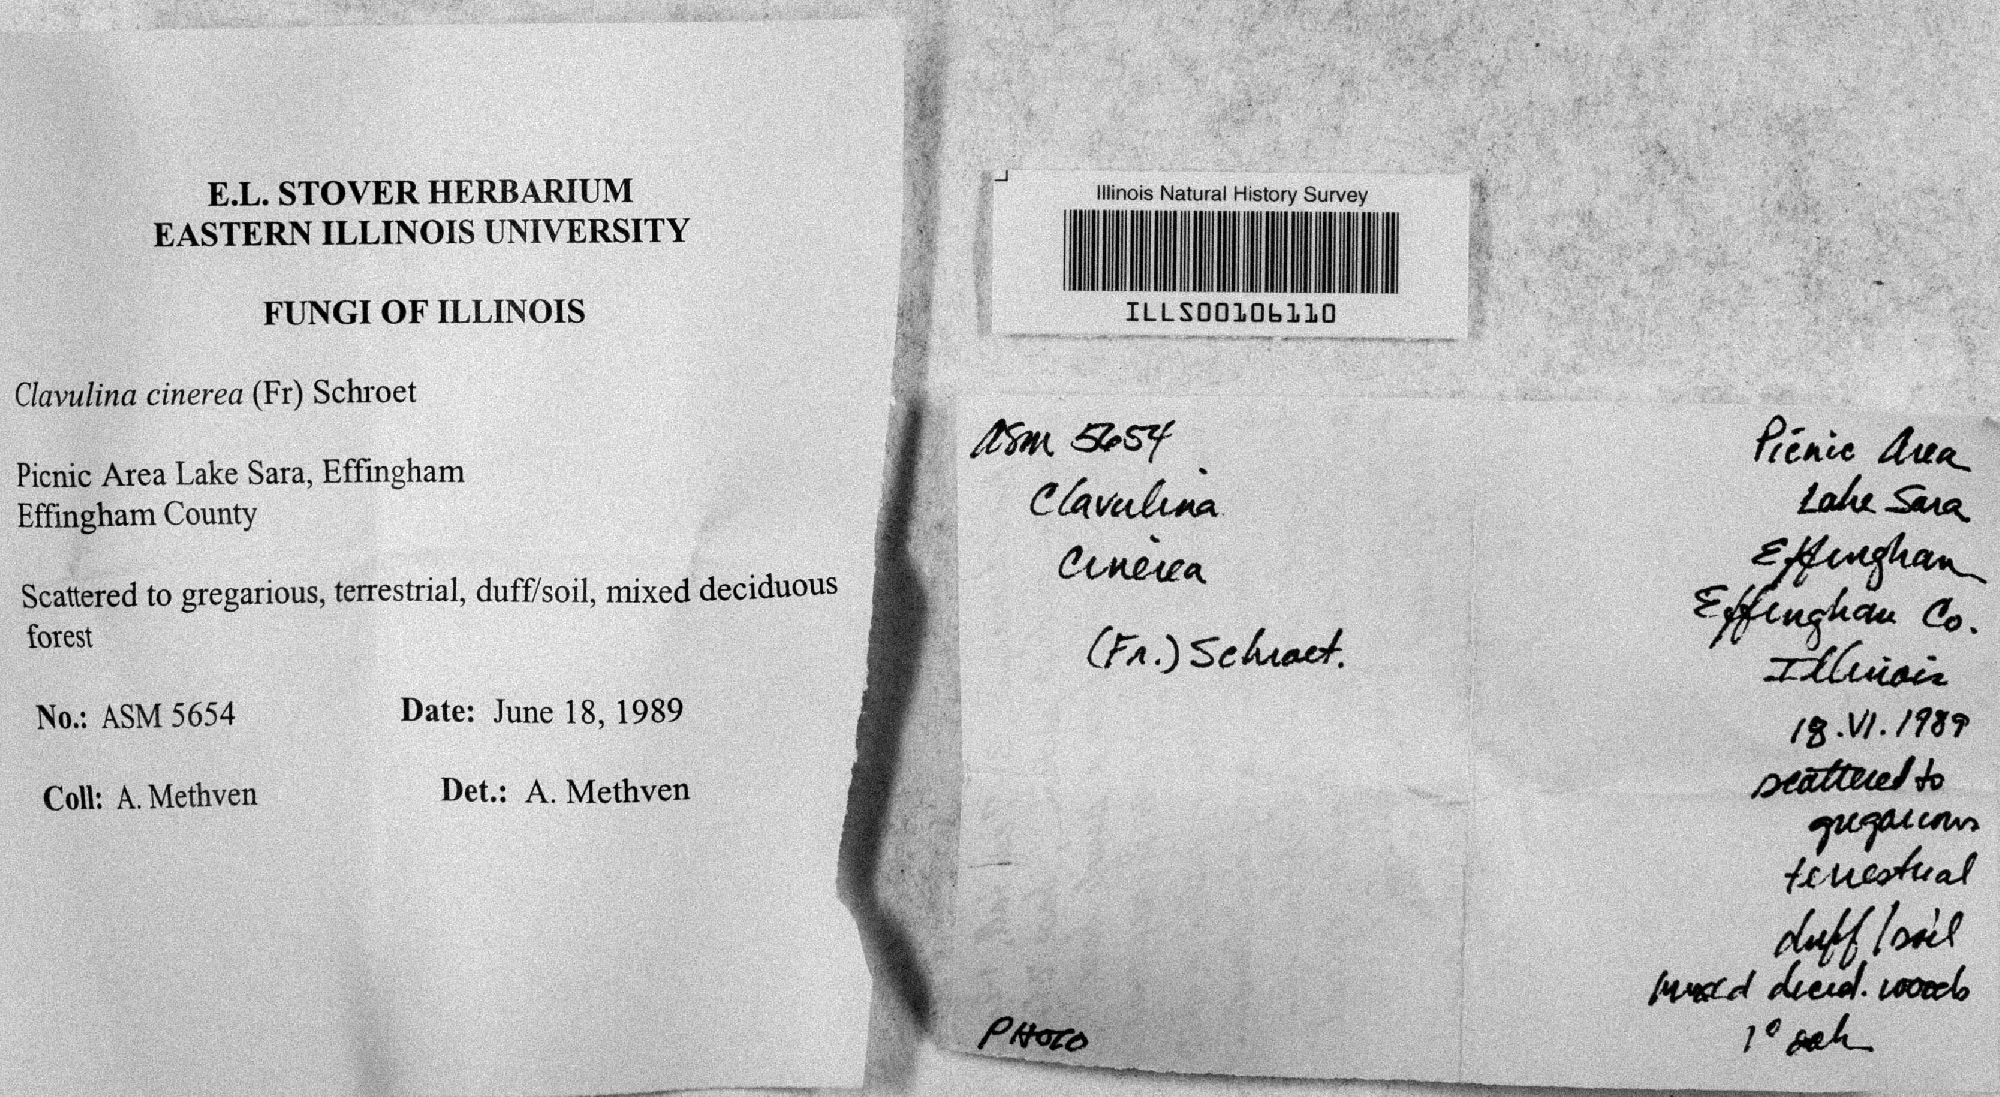 E.L. STOVER HERBARIUM
EASTERN ILLINOIS UNIVERSITY
FUNGI OF ILLINOIS
Clavulina cinerea (Fr) Schroet
Picnic Area Lake Sara, Effingham
Effingham County
Scattered to gregarious, terrestrial, duff/soil, mixed deciduous
forest
No.: ASM 5654 Date: June 18, 1989
Coll: A. Methven Det.: A. Methven
Illinois Natural History Survey
ILLS00106110
ASM 5654
Clavulina
cinerea
(Fr.) Schroet.
PHOTO
Picnic Area
Lake Sara
Effingham
Effingham Co.
Illinois
18.VI.1989
scattered to
gregarious
terrestrial
duff/soil
mixed decid. woods
1° oak